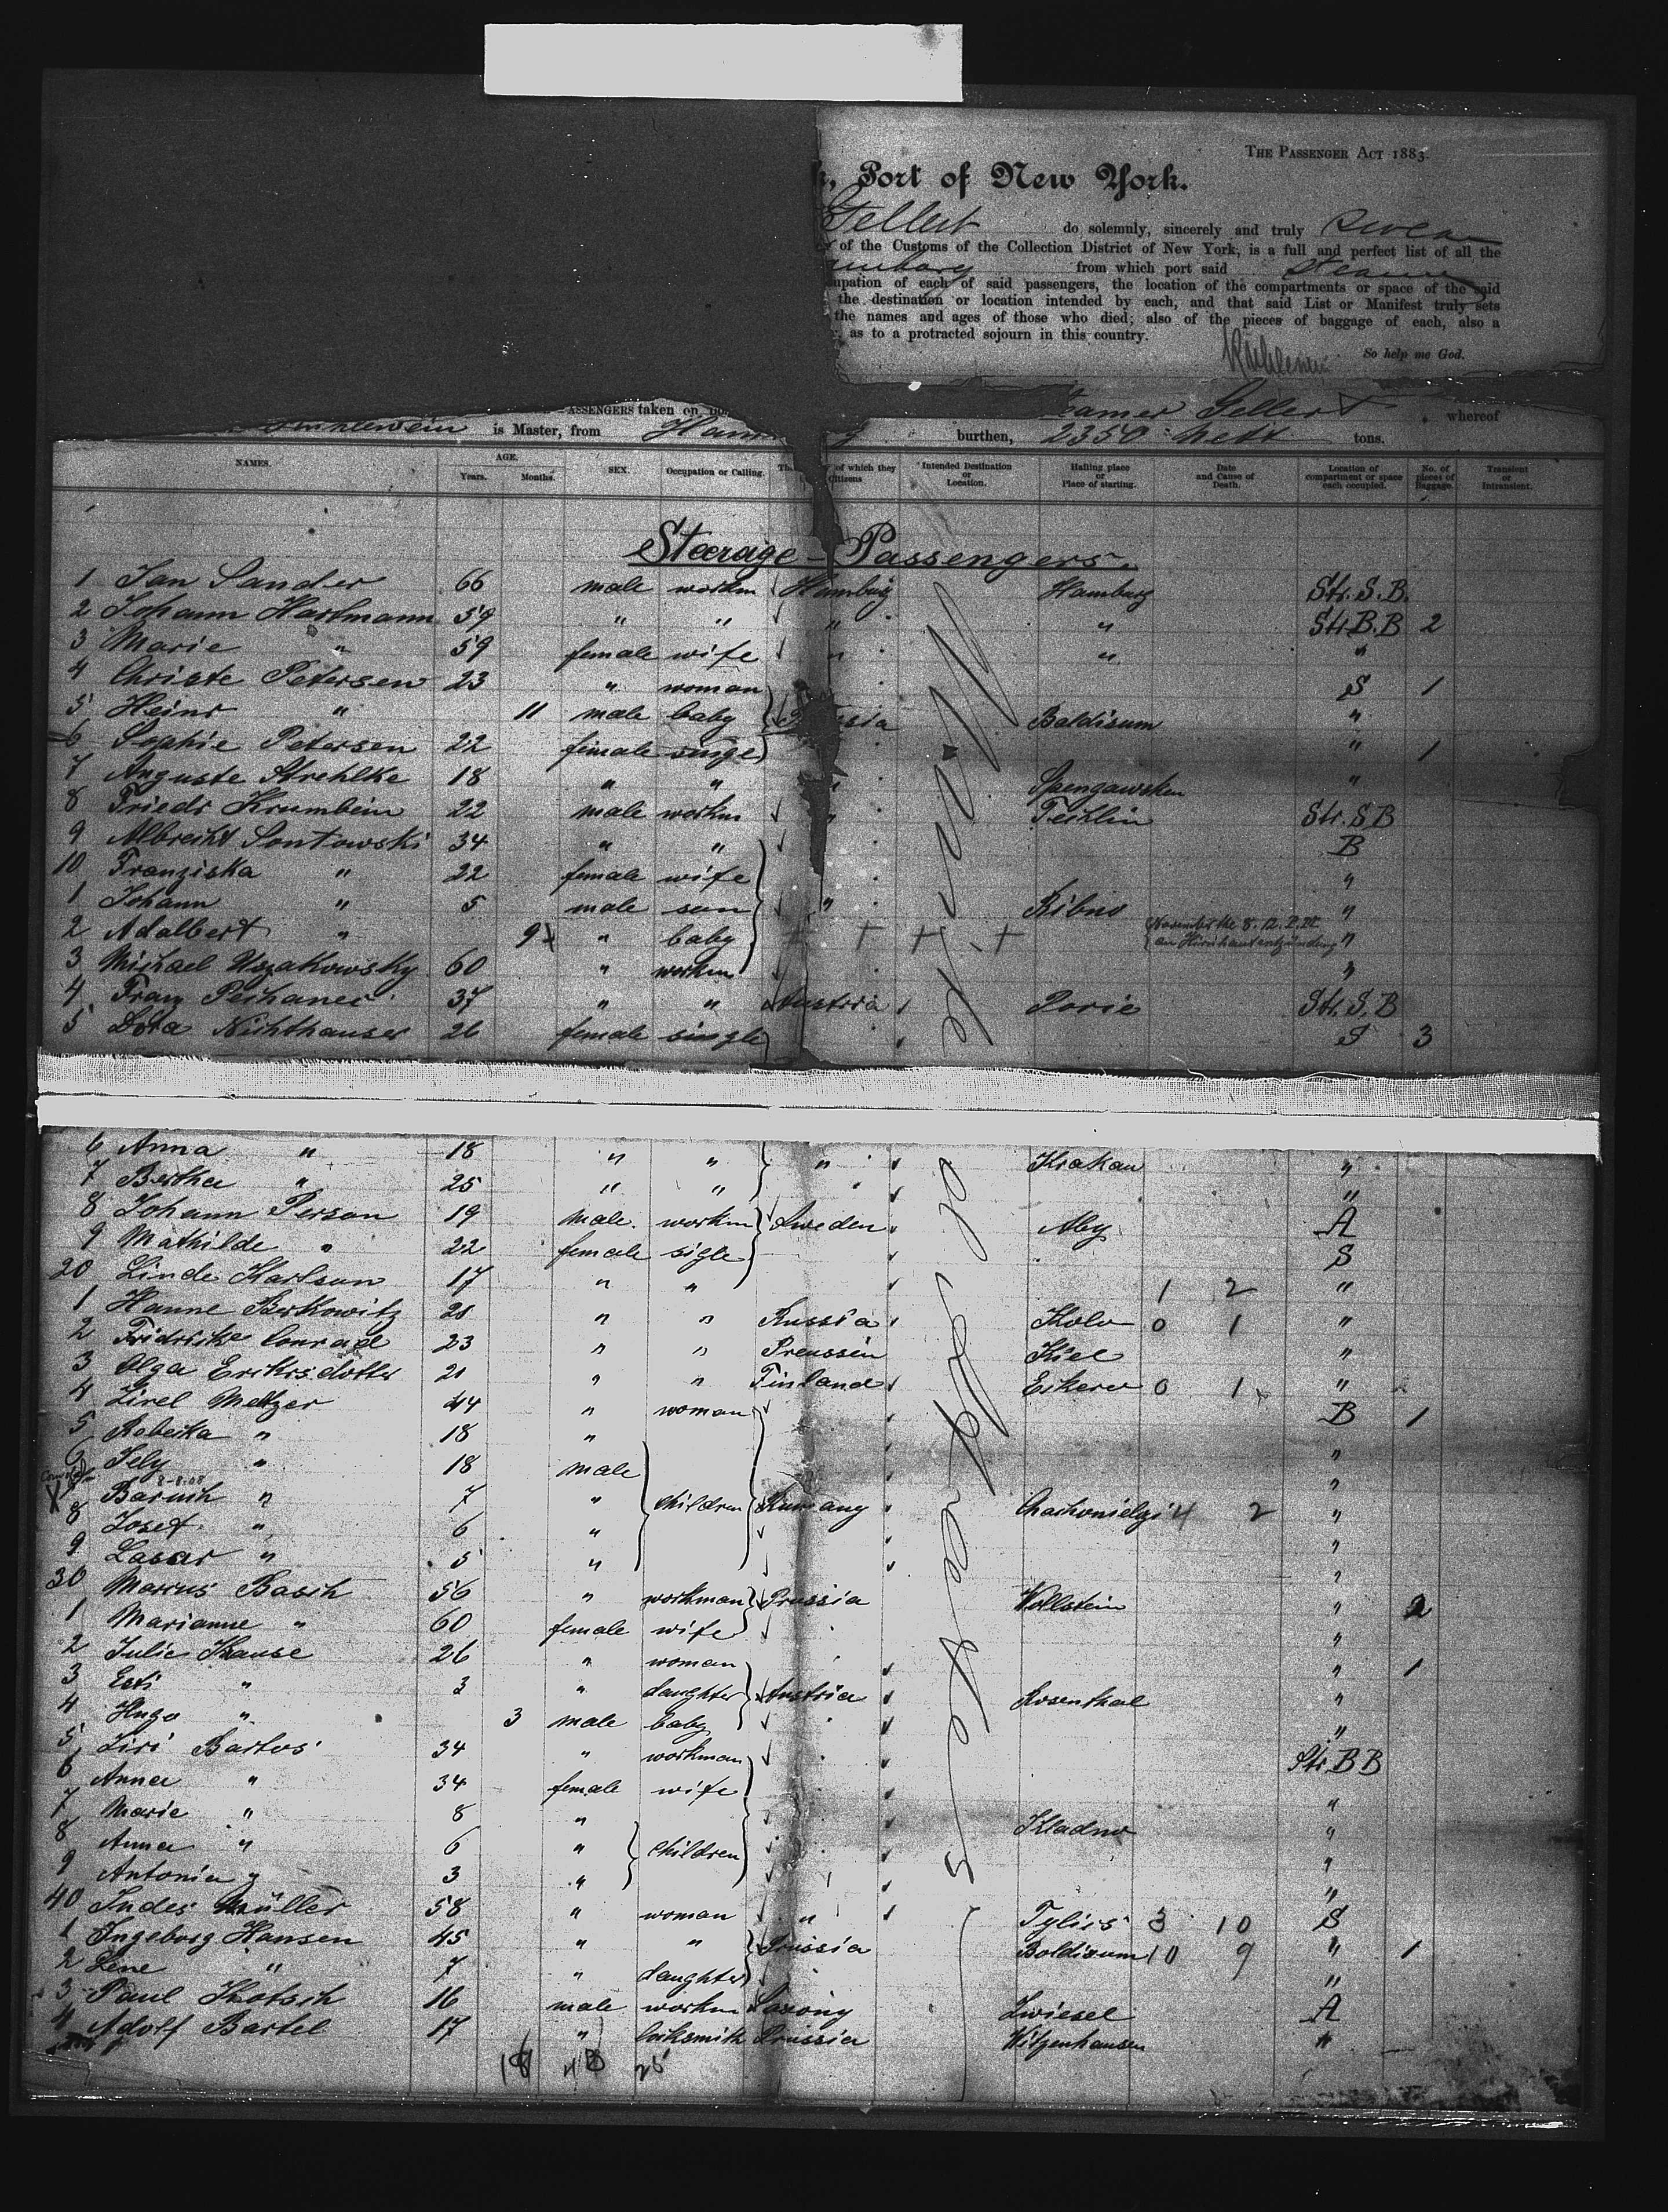 THE PASSENGER ACT 1883.
Port of New York.
Gellert do solemnly, sincerely and truly swear
of the Customs of the Collection District of New York, is a full and perfect list of all the
from which port said Steamer
upation of each of said passengers, the location of the compartments or space of the said
the destination or location intended by each, and that said List or Manifest truly sets
the names and ages of those who died; also of the pieces of baggage of each, also a
as to a protracted sojourn in this country.
So help me God.
ASSENGERS taken on eamer Gellert whereof
is Master, from Ham burthen, 2350 nett tons.
NAMES. AGE. Years. Months. SEX. Occupation or Calling. of which they Citizens Intended Destination or Location. Halling place or Place of starting. Date and Cause of Death. Location of compartment or space each occupied. No. of pieces of Baggage. Transient or Intransient.
Steerage-Passengers.
1 Jan Sander 66 male workm Hamburg Hamburg Str. S. B.
2 Johann Hartmann 59 " " " " Str B. B 2
3 Marie " 59 female wife " " "
4 Christe Petersen 23 " woman S 1
5 Heinr " 11 male baby ssia Boldixum "
6 Sophie Petersen 22 female singe " 1
7 Auguste Strehlke 18 " " " Spengawsken "
8 Friedr Krumbein 22 male workm " Techlin Str. S B
9 Albrecht Sontowski 34 " " B
10 Franziska " 22 female wife "
1 Johann " 5 male son " Ribno "
2 Adalbert " 9 + " baby + + + + November the 8. 12. an Hirnhautentzündung "
3 Michael 60 " workm "
4 Franz Pechanec 37 " " Austria Poric Str. S. B
5 Dora Nichthauser 26 female single S 3
6 Anna " 18 " " " Krakau "
7 Bertha " 25 " " "
8 Johann Person 19 male. workm Sweden Aby A
9 Mathilde " 22 female sigle S
20 Linde Karlson 17 " " 1 2 "
1 Hanne Berkowitz 21 " " Russia Kolo 0 1 "
2 Fridricke Conrad 23 " " Preussen Kiel "
3 Olga Eriksdotter 21 " " Finland Eikero 0 1 "
4 Zirel Metzer 44 " woman B 1
5 Robecka " 18 " "
6 Jely " 18 male "
X 7 Baruch " 8-8.08 7 " children 4 2 "
8 Josef " 6 " "
9 Lasar " 5 " "
30 Marcus Basch 56 " workman Prussia Wollstein " 2
1 Marianne " 60 female wife "
2 Julie Krause 26 " woman " 1
3 Esti " 3 " daughter Austria Rosenthal "
4 Hugo " 3 male baby "
5 Jiri Bartos 34 " workman Str. B B
6 Anna " 34 female wife "
7 Marie " 8 " Kladno "
8 Anna " 6 " children "
9 Antonia " 3 " "
40 Indes Müller 58 " woman " Tylics 3 10 S
1 Ingeborg Hansen 45 " " Prussia Boldixum 10 9 " 1
2 Lene " 7 " daughter "
3 Paul Kotsch 16 male workm Saxony Zwiesel A
4 Adolf Bartel 17 " locksmith Prussia Witzenhausen "